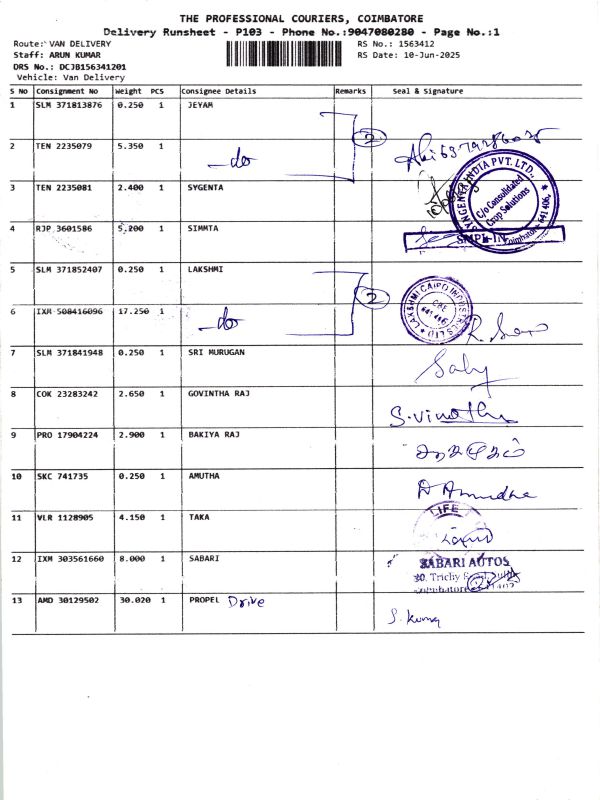 THE PROFESSIONAL COURIERS, COIMBATORE
Delivery Runsheet - P103 - Phone No.:9047080280 - Page No.:1
Route: VAN DELIVERY
RS No.: 1563412
Staff: ARUN KUMAR
RS Date: 10-Jun-2025
DRS No.: DCJB156341201
Vehicle: Van Delivery
S No Consignment No Weight PCS Consignee Details Remarks Seal & Signature
1 SLM 371813876 0.250 1 JEYAM
2 TEN 2235079 5.350 1 -do 2
3 TEN 2235081 2.400 1 SYGENTA
SYNGENTA INDIA PVT. LTD.
C/o Consolidated
Crop Solutions
Coimbatore 641 406.
4 RJP 3601586 5.200 1 SIMMTA
5 SLM 371852407 0.250 1 LAKSHMI
6 IXM 508416096 17.250 1 -do 2
7 SLM 371841948 0.250 1 SRI MURUGAN
8 COK 23283242 2.650 1 GOVINTHA RAJ S.Vinothu
9 PRO 17904224 2.900 1 BAKIYA RAJ
10 SKC 741735 0.250 1 AMUTHA
11 VLR 1128905 4.150 1 TAKA LIFE
12 IXM 303561660 8.000 1 SABARI SABARI AUTOS
Trichy
13 AMD 30129502 30.020 1 PROPEL Drive S. Kumar